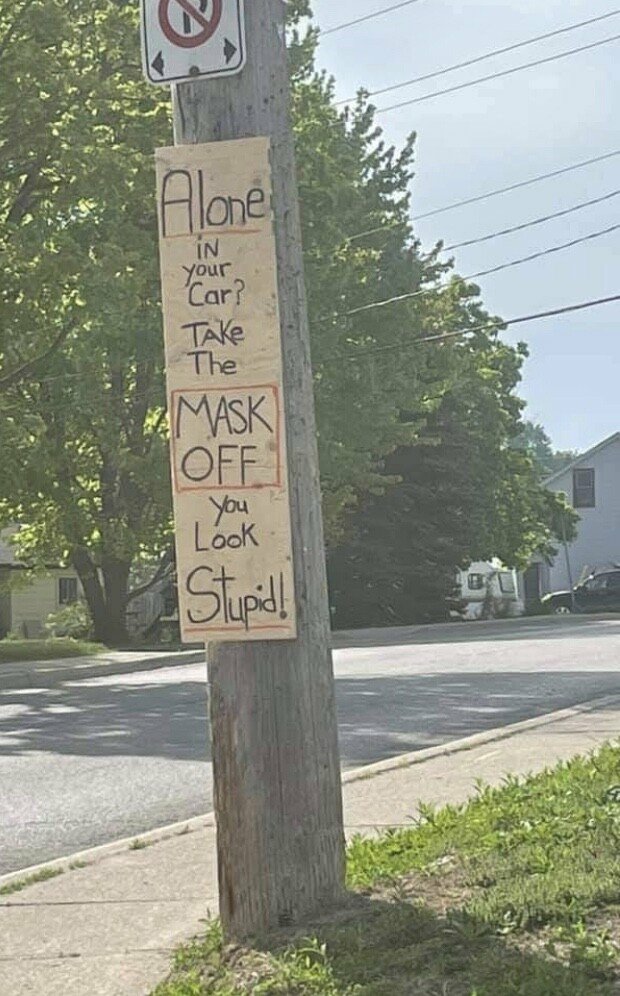 Alone
iN
your
Car?
TAKe
The
MASK
OFF
You
Look
Stupid!